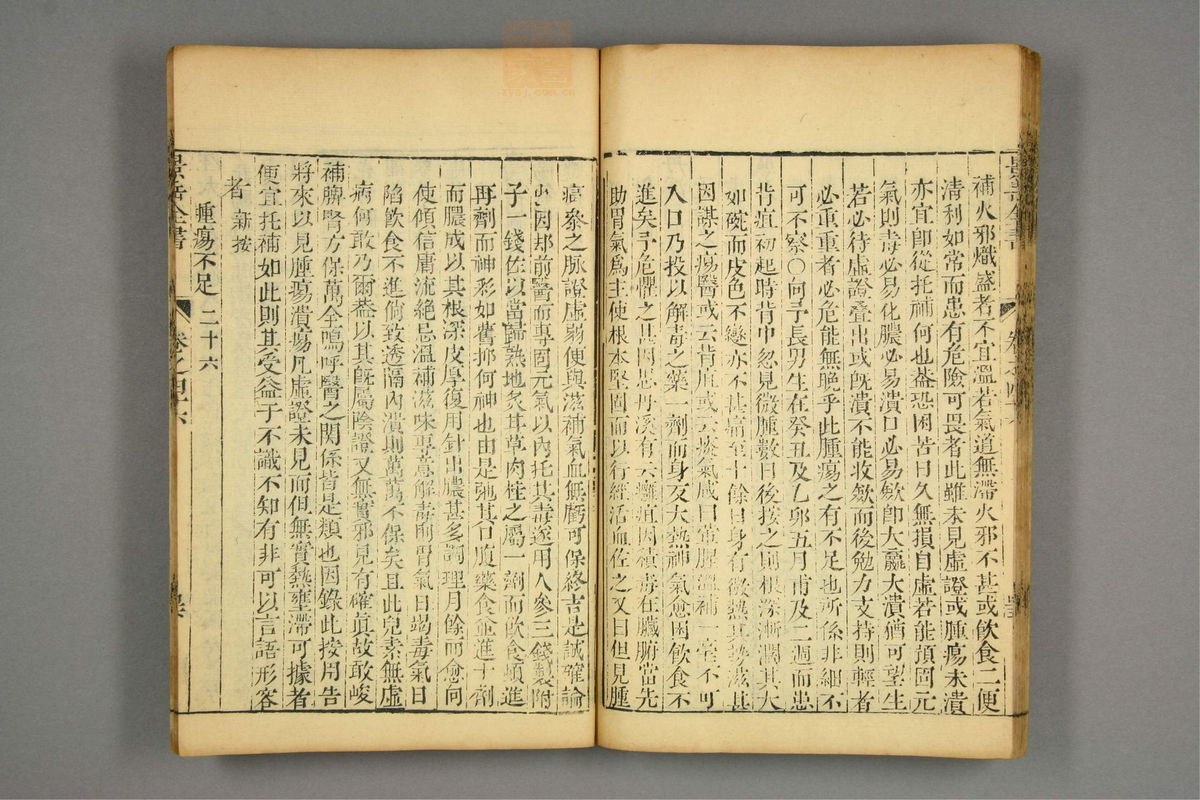 景岳全書
補火邪熾盛者不宜溫若氣道無滯火邪不甚或飲食二便
清利如常而患有危險可畏者此雖未見虛證或腫瘍未潰
亦宜即從托補何也葢恐困苦日久無損自虛若能預固元
氣則毒必易化膿必易潰口必易斂即大羸大潰猶可望生
若必待虛證叠出或旣潰不能收斂而後勉力支持則輕者
必重重者必危能無晚乎此腫瘍之有不足也所係非細不
可不察○向予長男生在癸丑及乙卯五月甫及二週而患
背疽初起時背中忽見微腫數日後按之則根深漸濶其大
如碗而皮色不變亦不甚痛至十餘日身有微熱其勢滋甚
因謀之瘍醫或云背疽或云痰氣咸曰荤腥溫補一毫不可
入口乃投以解毒之藥一劑而身反大熱神氣愈困飲食不
進矣予危懼之甚因思丹溪有云癰疽因積毒在臟腑當先
助胃氣爲主使根本堅固而以行經活血佐之又曰但見腫
痛參之脉證虛弱便與滋補氣血無虧可保終吉是誠確論
也因却前醫而專固元氣以內托其毒遂用人參三錢製附
子一錢佐以當歸熟地炙甘草肉桂之屬一劑而飲食頓進
再劑而神彩如舊抑何神也由是弛其口腹藥食並進十劑
而膿成以其根深皮厚復用針出膿甚多調理月餘而愈向
使傾信庸流絶忌溫補滋味專意解毒則胃氣日竭毒氣日
陷飲食不進倘致透膈內潰則萬萬不保矣且此兒素無虛
病何敢乃爾葢以其旣屬陰證又無實邪見有確眞故敢峻
補脾腎方保萬全嗚呼醫之関係皆是類也因錄此按用告
將來以見腫瘍潰瘍凡虛證未見而但無實熱壅滯可據者
便宜托補如此則其受益于不識不知有非可以言語形容
者 新按
腫瘍不足 二十六
景岳全書
卷之四六